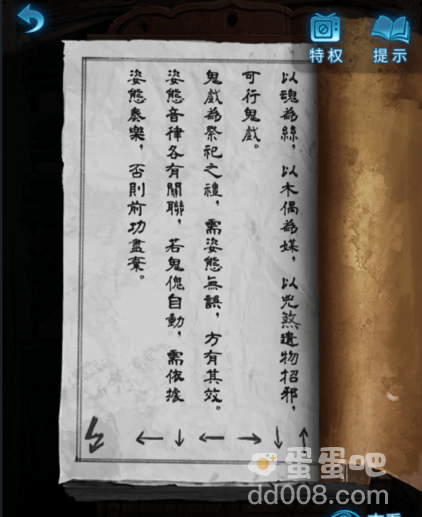 特权
提示
以魂為絲，以木偶為媒，以兇煞遺物招邪，
可行鬼戲。
鬼戲為祭祀之禮，需姿態無誤，方有其效。
姿態音律各有關聯，若鬼傀自動，需依據
姿態奏樂，否則前功盡棄。
↑↓→←↓←
蛋蛋吧
dd008.com